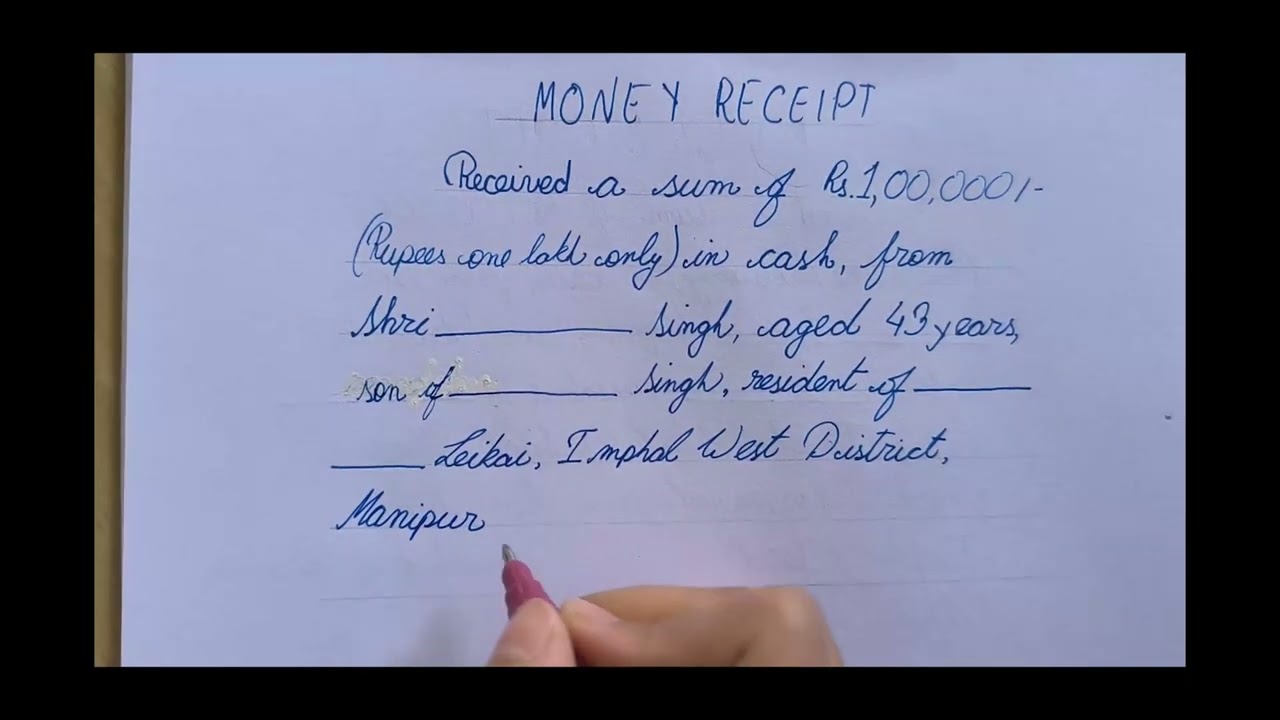 MONEY RECEIPT
Received a sum of Rs.1,00,000/-
(Rupees one lakh only) in cash, from
Shri __________ Singh, aged 43 years,
son of __________ Singh, resident of ______
_____ Leikai, Imphal West District,
Manipur